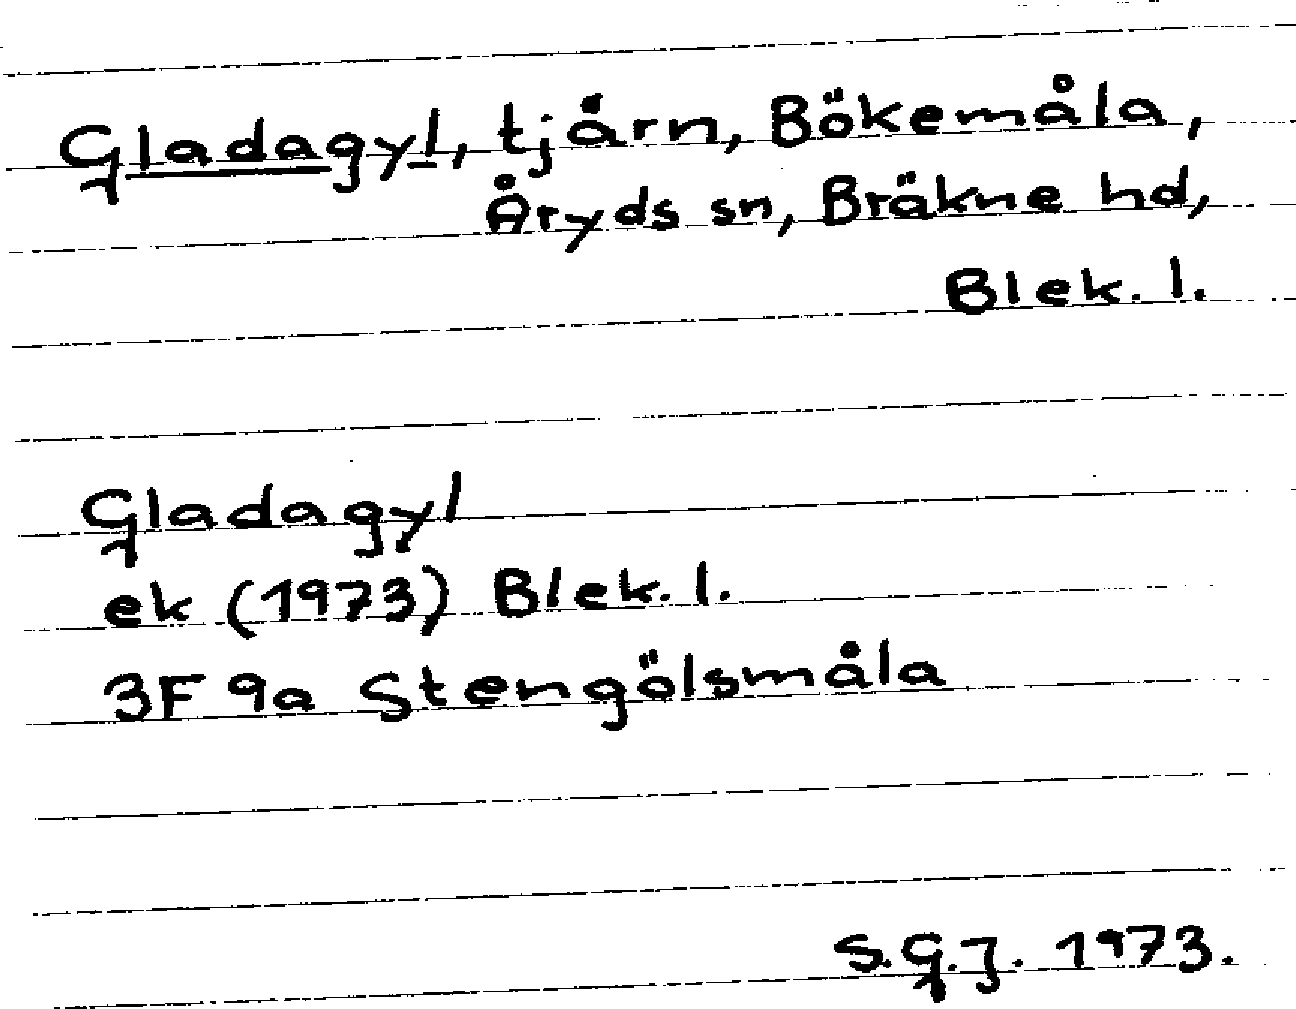 Gladagyl, tjärn, Bökemåla,
Åryds sn, Bräkne hd,
Blek. l.
Gladagyl
ek (1973) Blek. l.
3F 9a Stengölsmåla
S.G.J. 1973.